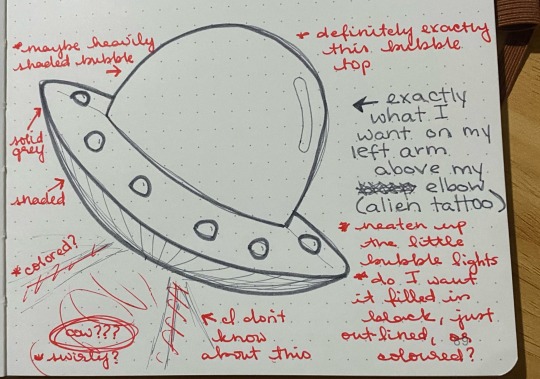 * maybe heavily
shaded bubble
* definitely exactly
this bubble
top
exactly
what I
want on my
left arm
above my
elbow
(alien tattoo)
solid
grey
shaded
* neaten up
the little
bubble lights
* do I want
it filled in
black, just
outlined, or
coloured?
* colored?
cow???
* swirly?
I don't
know
about this